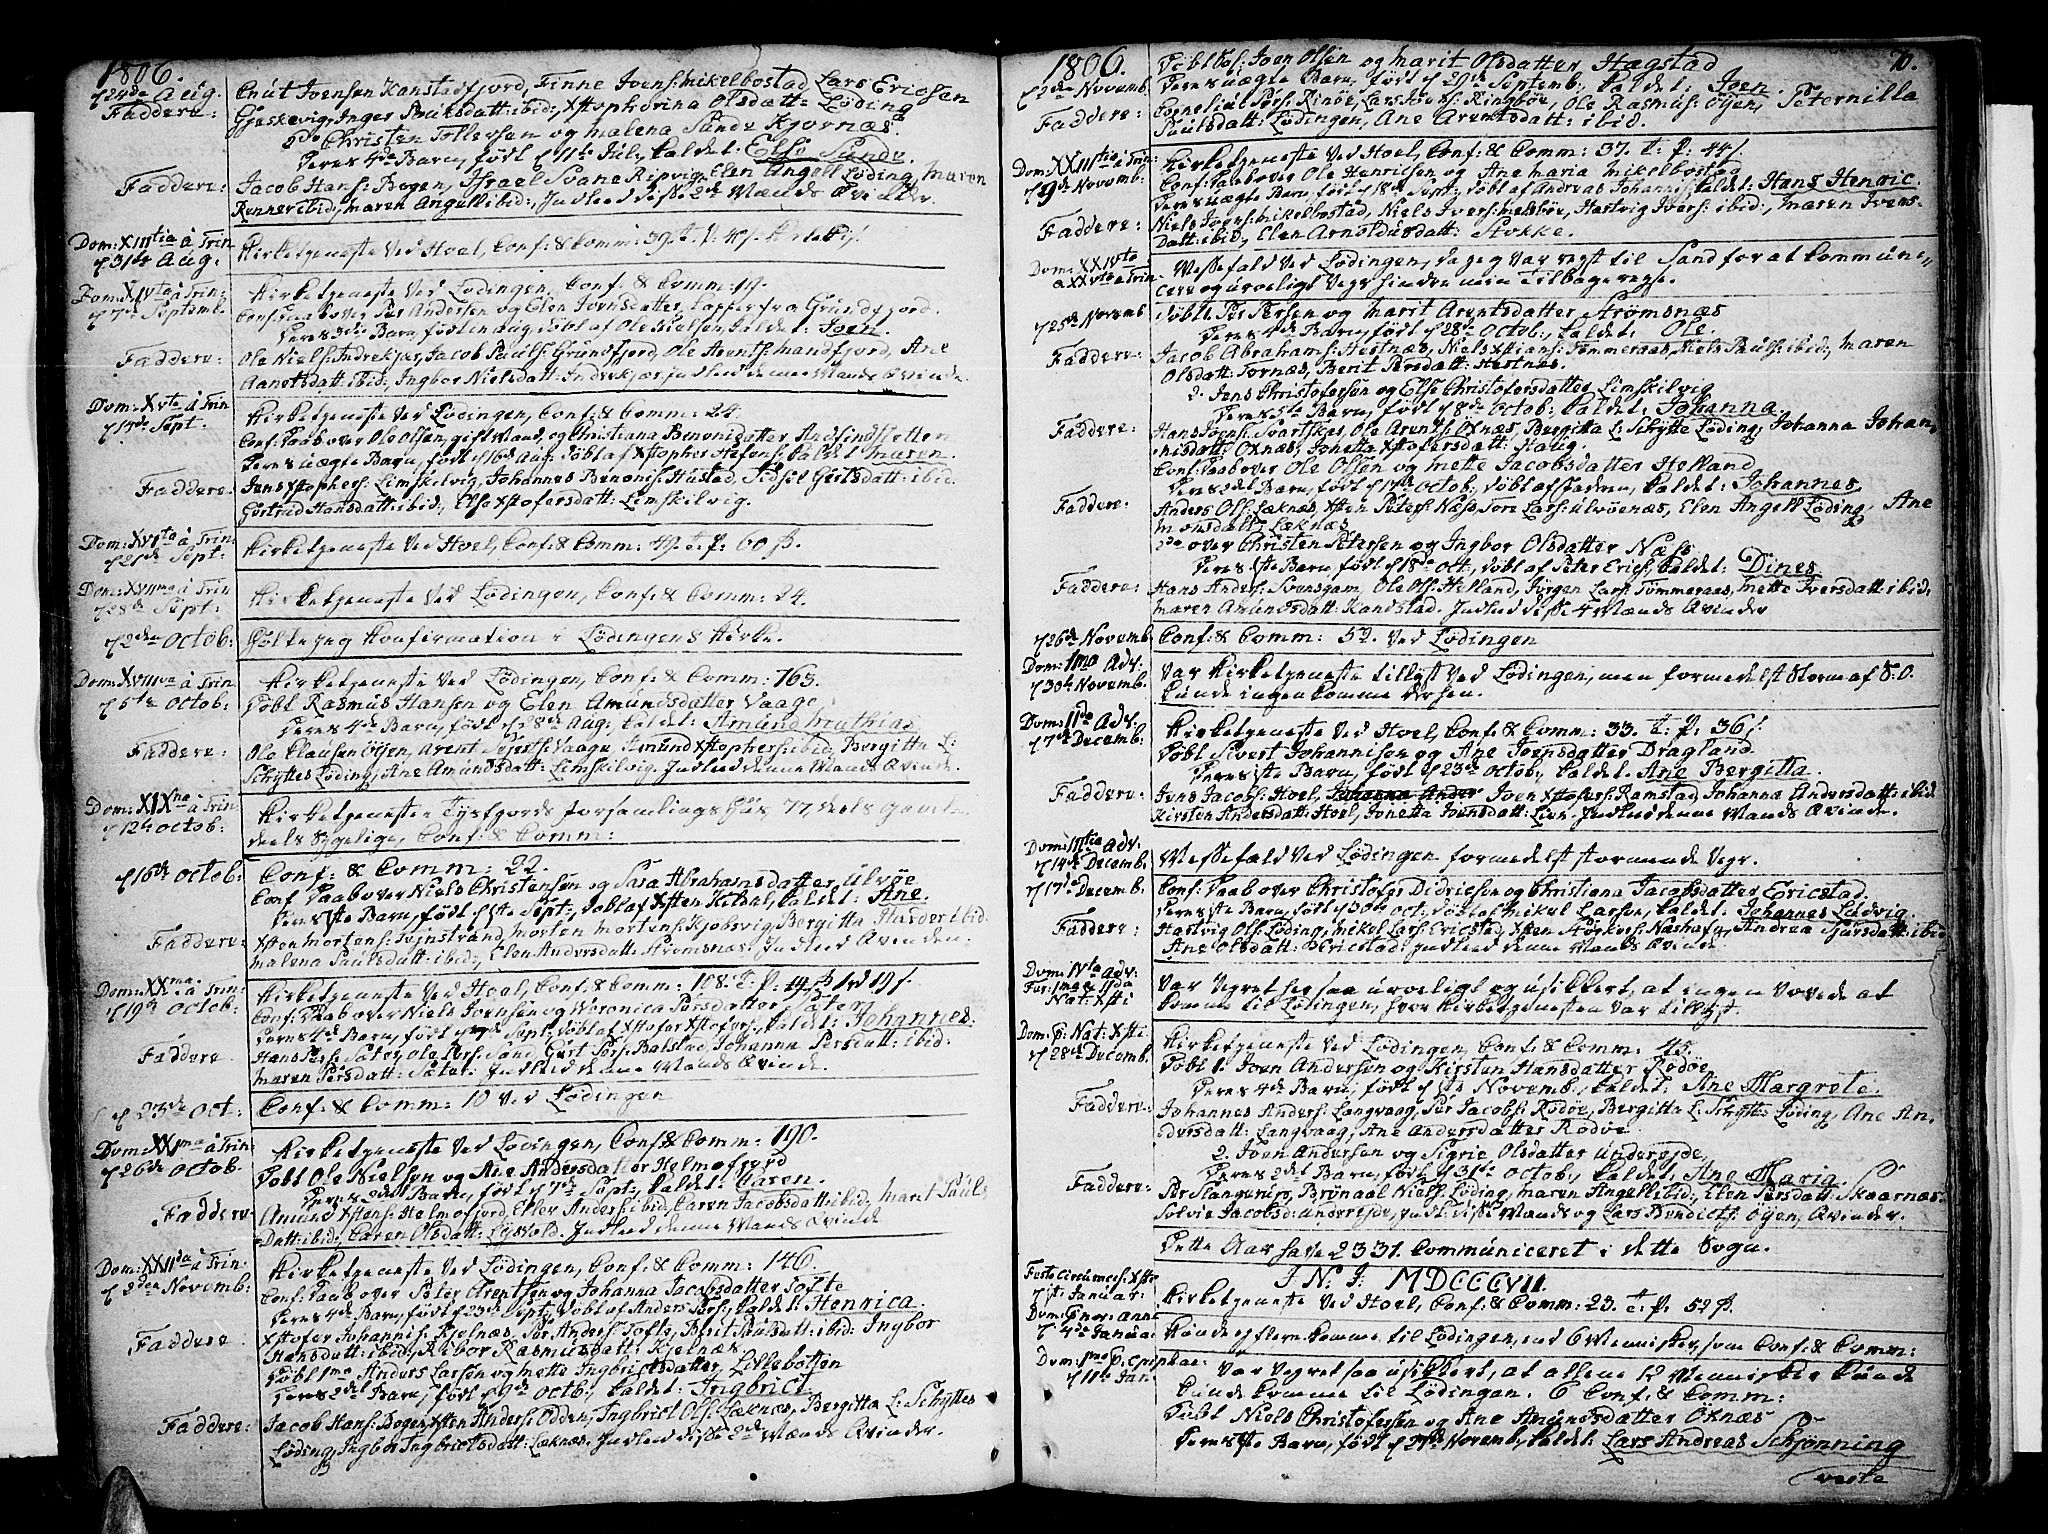 1806.
d 24de Aug. Cnut Joensen Kanstadfjord, Finne Ivens: Mikelbostad, Lars Ericsen
Faddere: Gjeskevig, Inger Pouksdatt: ibid: Xstophorina Olsdatt: Löding
2do Christen Tollersen og Malena Sunde Kjörnæs
Deres 4de Barn, födt d 11te Jul: kaldet: Elsa Sunde.
Faddere: Jacob Hans: Bogen, Israel Svane Ripvig, Elen Angell Löding, Maren
Renner ibid: Maren Angell ibid: Indleed disse 2de Mænds Qvinder.
Dom: XIIItia à Trin d 31te Aug: Kirketjeneste ved Hoel, Conf: & Comm: 39.
Dom: XIVta à Trin: d 7de Septemb. Kirketjeneste ved Lödingen, Conf: & Comm: 19.
Conf: Daab over Per Andersen og Elen Joensdatter, Lapper fra Grundfjord.
Deres 3die Barn, födt in Aug: döbt af Ole Nielsen, kaldet: Joen.
Faddere: Ole Niels: Indrekjær, Jacob Pauls: Grundfjord, Ole Arents: Mandfjord, Ane
datt: ibid, Ingbor Nielsdatt: Indrekjær, Indleed denne Mands Qvinde.
Dom: XVta à Trin d 14de Sept. Kirketjeneste ved Lödingen, Conf: & Comm: 24.
Conf: Daab over Ole Olsen, gift Mand, og Christiana Benonisdatter, Andfindsletten
Deres uægte Barn, födt d 16de Aug: döbt af Xstopher kaldet Maren.
Faddere: Jens Xstophers: Limskilvig, Johannes Benonis: Hustad, Sidsel Geilsdatt: ibid.
Gertrud Hansdatt: ibid: Elsa Xstofersdatt: Limskilvig.
Dom: XVIta à Trin d 21de Sept. Kirketjeneste ved Hoel, Conf: & Comm: 49. T. P: 60 ß.
Dom: XVIIma à Trin d 28de Sept: Kirketjeneste ved Lödingen, Conf: & Comm: 24.
d 2den Octob: Holte jeg Konfirmation i Lödingens Kirke.
Dom: XVIIIva à Trin d 5te Octob: Kirketjeneste ved Lödingen, Conf: & Comm: 163.
Döbt Rasmus Hansen og Elen Amundsdatter Vaage
Deres 4de Barn, födt d 28de Aug: kaldet: Amund Mathias
Faddere: Ole Clausen Öjen, Arent Sejerts: Vaage, Amund Xstophers: ibid, Bergitta L:
Schyttes Löding, Ane Amundsdatt: Limskilvig. Indleed denne Mands Qvinde.
Dom: XIXna à Trin d 12te Octob: Kirketjeneste Tysfjords forsamlings Huus 77, deels Gamle
deels Sygelige, Conf: & Comm:
d 16de Octob: Conf: & Comm: 22.
Conf: Daab over Niels Christensen og Sara Abrahamsdatter, Ulvöe
Deres 1ste Barn, födt d 1ste Sept: döbt af Xsten Keldal, kaldet: Ane.
Faddere: Xsten Mortens: Svinstrand, Morten Mortens: Kjöbsvig, Bergitta Harder ibid.
Malena Paulsdatt: ibid: Elen Andersdatt: Strömsnæs, Indleed Qvinden.
Dom: XXma à Trin: d 19de Octob: Kirketjeneste ved Hoel, Conf: & Comm: 108.
Conf: Daab over Niels Joensen og Veronica Persdatter, Sæter
Deres 4de Barn, födt d Sept: döbt af Xstofer Xstofers: kaldet: Johannes:
Faddere Hans Pers: Sæter, Ole Pers: Sand, Gurt Pers: Balstad, Johanna Persdatt: ibid:
Maren Persdatt: Sæter: Indleed denne Mands Qvinde.
d 23de Oct: Conf: & Comm: 10 ved Lödingen
Dom: XXIma à Trin: d 26de Octob. Kirketjeneste ved Lödingen, Conf: & Comm: 190.
Döbt Ole Nielsen og Ane Andersdatter Helmofjord
Deres 2det Barn, födt d 7de Sept: kaldet: Caren.
Faddere Amund Xstens: Helmofjord, Eller Anders: ibid, Caren Jacobsdatt: ibid, Marit Pauls
Datt: ibid, Caren Olsdatt: Indleed denne Mands Qvinde
Dom: XXIIda à Trin: d 2den Novemb: Kirketjeneste ved Lödingen, Conf: & Comm: 146.
Conf: Daab over Peter Arentsen og Johanna Jacobsdatter Tofte
Deres 4de Barn, födt d 23de Sept: döbt af Anders Pers: kaldet: Henrica.
Faddere Xstofer Johannis: Kjelnæs, Per Anders: Tofte, Berit Paulsdatt: ibid: Ingbor
Hansdatt: ibid, Rebor Rasmusdatt: Kjelnæs
Döbt 1mo Anders Larsen og Mette Ingbrictsdatter Lillebotten
Deres 2det Barn, födt d 9de Octb: kaldet: Ingbrict.
Faddere: Jacob Hans: Bogen, Xsten Anders: Odden, Ingbrict Ols: Læknæs, Bergitta L: Schyttes
Löding, Ingbor Ingbrictsdatt: Læknæs. Indleed disse 2de Mænds Qvinder.
1806. 70.
d 2den Novemb. Döbt 2do: Joen Olsen og Marit Olsdatter Hægstad
Deres uægte Barn, födt d 29de Septemb: kaldet: Joen.
Faddere: Cornelius Pers: Rinöe, Lars Joens: Ringböe, Ole Rasmus: Öjen, Peternilla
Paulsdatt: Lödingen, Ane Arentsdatt: ibid.
Dom: XXIIItia à Trin: d 9de Novemb: Kirketjeneste ved Hoel, Conf: & Comm: 37. T: P: 44 ß.
Conf: Daab over Ole Henriksen og Ane Maria Mikelbostad
Deres uægte Barn, födt d 18de Sept: döbt af Andreas Johannis: kaldet: Hans Henric.
Faddere: Niels Joens: Mikelbostad, Niels Ivers: Melsböe, Hartvig Ivers: ibid:, Maren Ivers-
Datt: ibid:, Elen Arnoldusdatt: Stokke.
Dom: XXIVta & XXVta à Trin: Messefald ved Lödingen, da jeg var rejst til Sand for at Commune-
cere og uroeligt Vejr hindrede min Tilbagerejse.
d 25de Novemb Döbt Per Persen og Marit Arentsdatter Strömsnæs
Deres 4de Barn, födt d 28de Octob: kaldet: Ole.
Faddere: Jacob Abrahams: Hestnæs, Niels Xstians: Tömmeraas, Niels Pauls: ibid:, Maren
Olsdatt: Tornæs, Berit Persdatt: Hestnæs.
2. Jens Christofersen og Else Christofersdatter Limskilvig
Deres 5te Barn, födt d 8de Octob: kaldet: Johanna.
Faddere: Hans Joens: Svartskar, Ole Arents: Oxnæs, Bergitta L: Schytte Löding, Johanna Johan-
nisdatt: Oxnæs, Jonetta Xstofersdatt: Haug.
Conf: Daab over Ole Olsen og Mette Jacobsdatter Helland
Deres 2det Barn, födt d 17de Octob: döbt af Faderen, kaldet: Johannes.
Faddere: Anders Ols: Læknæs, Xsten Peters: Næss, Tore Lars: Ulvöenæs, Elen Angell Löding, Ane
Monsdatt: Læknæs
2do over Christen Petersen og Ingbor Olsdatter Næss
Deres 1ste Barn, födt d 18de Oct:, döbt af Peter Erics: kaldet: Dines.
Faddere: Hans Anders: Svensgam, Ole Ols: Helland, Jörgen Lars: Tömmeraas, Mette Iversdatt: ibid:
Maren Amundsdatt: Kanstad. Indleed disse 4 Mænds Qvinder
d 26de Novemb. Conf: & Comm: 52. ved Lödingen
Dom: 1ma Adv: d 30te Novemb: Var Kirketjeneste tillyst ved Lödingen, men formedelst Storm af S.O.
kunde ingen komme dersen.
Dom: IIda Adv: d 7de Decemb: Kirketjeneste ved Hoel, Conf: & Comm: 33. T: P: 36 ß.
Döbt Sivert Johannisen og Ane Joensdatter Dragland
Deres 1ste Barn, födt d 23de Octob: kaldet: Ane Bergitta.
Faddere: Jens Jacobs: Hoel, Iven Xstofers: Ramstad, Johanna Andersdatt: ibid
Kirsten Andersdatt: Hoel, Jonetta Joensdatt: Lien. Indleed denne Mands Qvinde.
Dom: IIItia Adv: d 14de Decemb: Messefald ved Lödingen formedelst stormende Vejr.
d 17de Decemb. Conf: Daab over Christofer Didricsen og Christiana Jacobsdatter, Ericstad
Deres 1ste Barn, födt d 30te Oct: döbt af Mikel Larsen, kaldet: Johannes Ludvig.
Faddere: Hartvig Ols: Löding, Mikel Lars: Ericstad, Xsten Störkers: Næshafn, Andrea Sjursdatt: ibid
Ane Olsdatt: Ericstad: Indleed denne Mands Qvinde
Dom: IVta Adv: Fer: 1ma & 2da Nat: Xsti Var Vejret her saa uroeligt og usikkert, at ingen vovede at
komme til Lödingen, hvor Kirketjenesten var tillyst.
Dom: p: Nat: Xsti d 28de Decemb. Kirketjeneste ved Lödingen, Conf: & Comm: 45.
Döbt 1. Joen Andersen og Kirsten Hansdatter Rödöe
Deres 4de Barn, födt d 1ste Novemb: kaldet: Ane Margrete.
Faddere: Johannes Anders: Langvaag, Per Jacobs: Rödöe, Bergitta L: Schyttes Löding, Ane An-
dersdatt: Langvaag, Ane Andersdatter Rödöe
2. Joen Andersen og Sigrie Olsdatter Underejde,
Deres 2det Barn, födt d 31te Octob: kaldet: Ane Maria.
Faddere: Per Slangerup, Brönaal Niels: Löding, Maren Angell ibid:, Elen Persdatt: Skaarnæs.
Solvie Jacobsd: Underejde, Indl: disse Mands og Lars Bendicts: Öjen, Qvinder.
Dette Aar have 2331. Communiceret i dette Sogn.
J. N. J: MDCCCVII.
Festo Circumcis: Xsti d 1ste Januar: Kirketjeneste ved Hoel, Conf: & Comm: 23. T. P. 52 ß.
Dom: p nov: anni d 4de Janua: Kunde ej flere komme til Lödingen, end 6 Mennisker, som Conf: & Comm:
Dom: 1ma p: epiphan: d 11te Jan: Var Vejret saa usikkert, at allene 12 Mennisker kunde
kunde komme til Lödingen. 6 Conf: & Comm:
Döbt Niels Christofersen og Ane Amundsdatter Öxnæs
Deres 1ste Barn, födt d Novemb: kaldet: Lars Andreas Schjönning
verte